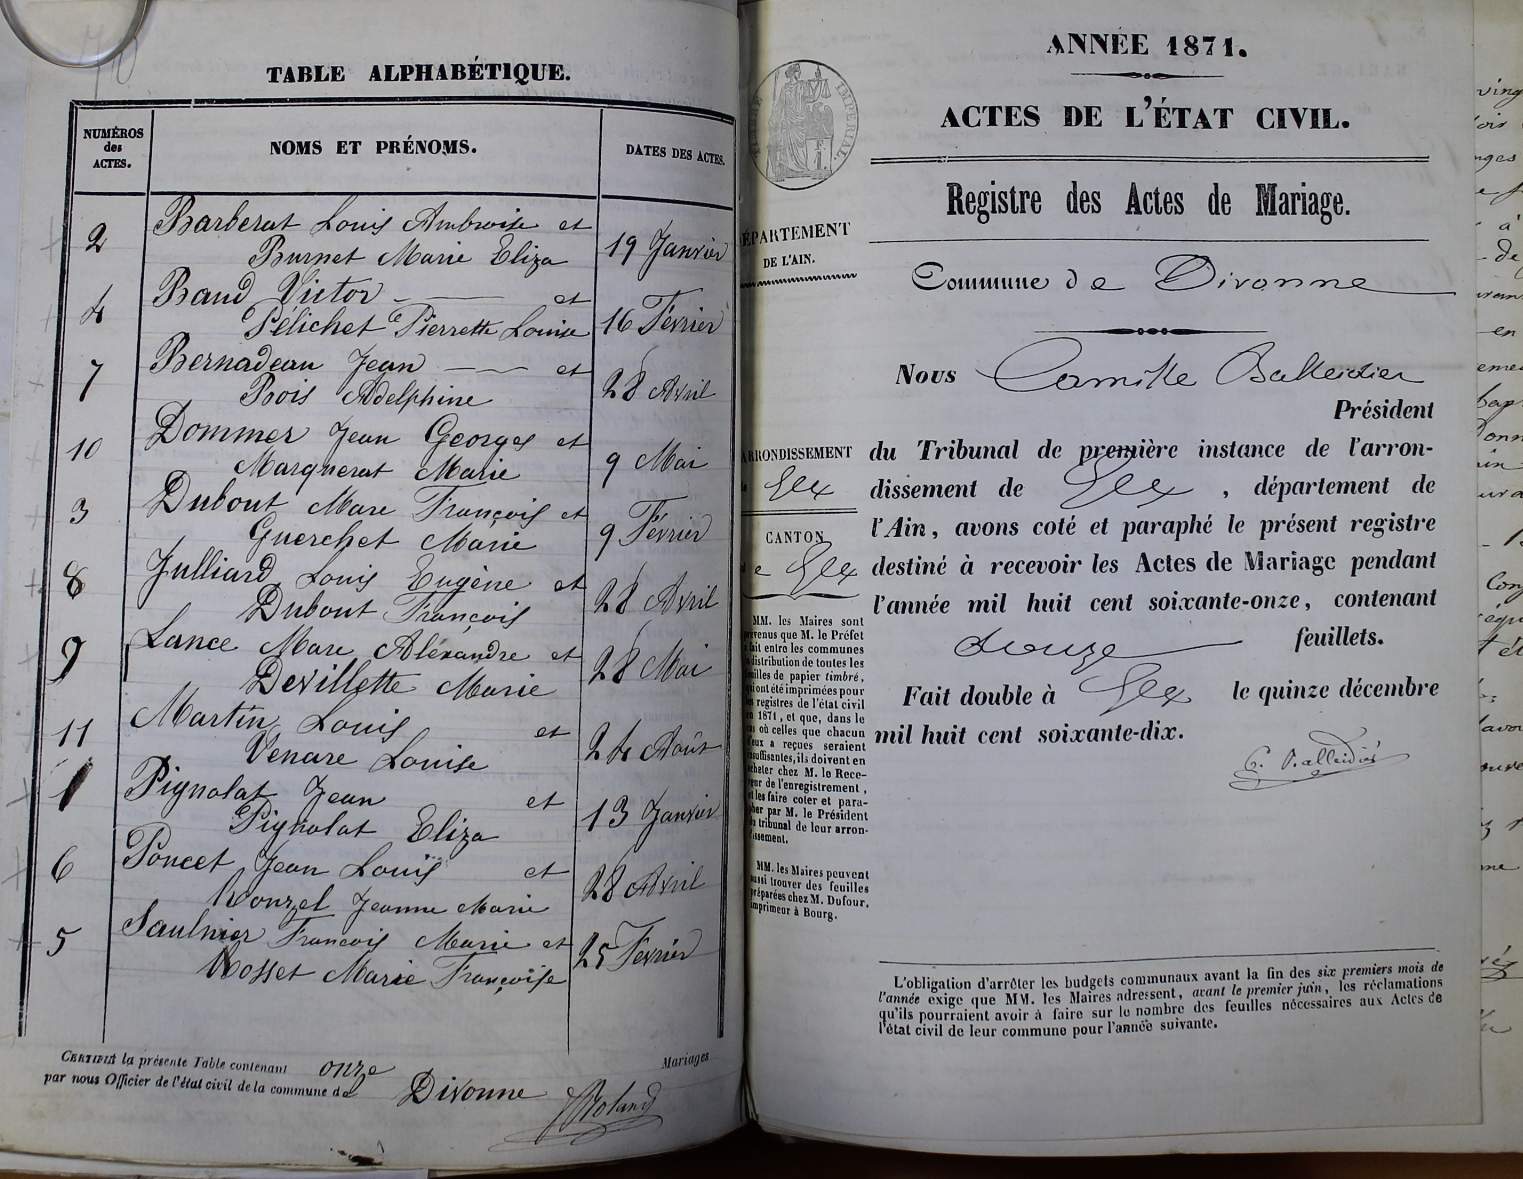 TABLE ALPHABÉTIQUE.
NUMÉROS des ACTES. NOMS ET PRÉNOMS. DATES DES ACTES.
Barberat Louis Ambroise et
2 Burnet Marie Eliza 19 Janvier
Baud Victor et
4 Pélichet Pierrette Louise 16 Février
Bernadeau Jean et
7 Bois Adelphine 28 Avril
Dommer Jean Georges et
10 Marguerat Marie 9 Mai
Dubout Marc François et
3 Guerchet Marie 9 Février
Julliard Louis Eugène et
8 Dubout François 28 Avril
Lance Marc Aléxandre et
9 Devillette Marie 28 Mai
Martin Louis et
11 Venare Louise 24 Août
Pignolat Jean et
1 Pignolat Eliza 13 Janvier
Poncet Jean Louis et
6 Jeanne Marie 28 Avril
Saulnier François Marie et
5 Rosset Marie Françoise 25 Février
CERTIFIÉ la présente Table contenant onze Mariages
par nous Officier de l'état civil de la commune de Divonne
Roland
ANNÉE 1871.
IMPERIAL.
1
ACTES DE L'ÉTAT CIVIL.
Registre des Actes de Mariage.
ÉPARTEMENT
DE L'AIN.
Commune de Divonne
Nous Camille Balleidier
Président
ARRONDISSEMENT
Gex
CANTON
e Gex
du Tribunal de première instance de l'arron-
dissement de Gex, département de
l'Ain, avons coté et paraphé le présent registre
destiné à recevoir les Actes de Mariage pendant
l'année mil huit cent soixante-onze, contenant
douze feuillets.
Fait double à Gex le quinze décembre
mil huit cent soixante-dix.
C. Balleidier
MM. les Maires sont
venus que M. le Préfet
fait entre les communes
distribution de toutes les
uilles de papier timbré,
ui ont été imprimées pour
registres de l'état civil
1871, et que, dans le
où celles que chacun
eux a reçues seraient
nsuffisantes, ils doivent en
cheter chez M. le Rece-
eur de l'enregistrement,
les faire coter et para-
her par M. le Président
tribunal de leur arron-
issement.
MM. les Maires peuvent
ussi trouver des feuilles
préparées chez M. Dufour,
imprimeur à Bourg.
L'obligation d'arrêter les budgets communaux avant la fin des six premiers mois de
l'année exige que MM. les Maires adressent, avant le premier juin, les réclamations
qu'ils pourraient avoir à faire sur le nombre des feuilles nécessaires aux Actes de
l'état civil de leur commune pour l'année suivante.